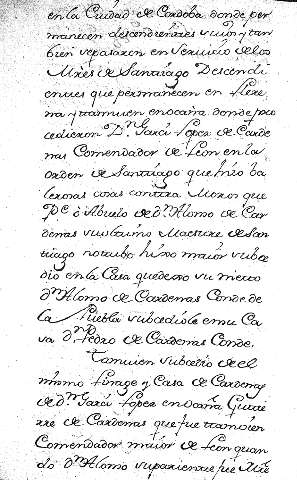 en la Ciudad de Cordoba donde per
manecen descendientes suios y tam
bien repararon en servicio de los
Mres de Santiago Descendi
entes que permanecen en Llere
na y tamuien en ocaña donde pro
cedieron Dn Garci Lopez de Carde
nas Comendador de Leon en la
orden de Santiago que hizo ba
lerosas cosas contra Moros que
Pe ó Abuelo de dn Alonso de Car
denas su ultimo Maestre de San
tiago no tubo hijo maior subce
dio en la Casa que dexo su nieto
dn Alonso de Cardenas Conde de
la Puebla subcediole en su Ca
sa dn Pedro de Cardenas Conde.
Tamuien subcedio de el
mismo linage y Casa de Cardenas
de dn Garci Lopez en ocaña Gutie
rre de Cardenas que fue tamvien
Comendador maior de Leon quan
do dn Alonso su pariente fue Mre